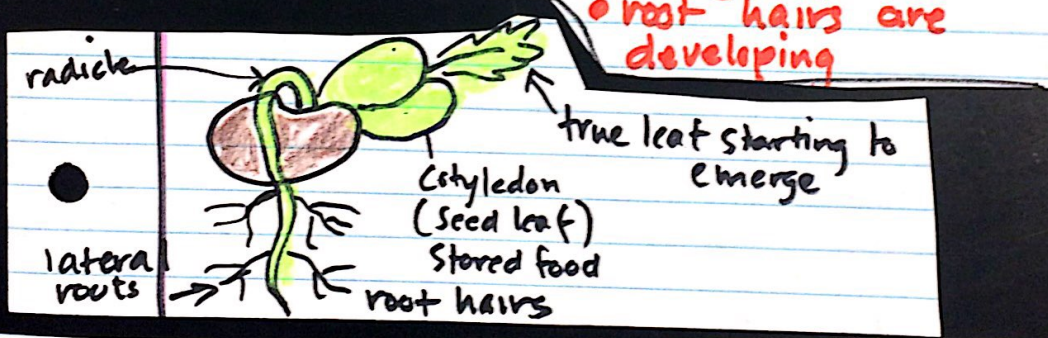 • root hairs are
developing
radicle
true leaf starting to
emerge
Cotyledon
(Seed leaf)
Stored food
lateral
roots
root hairs